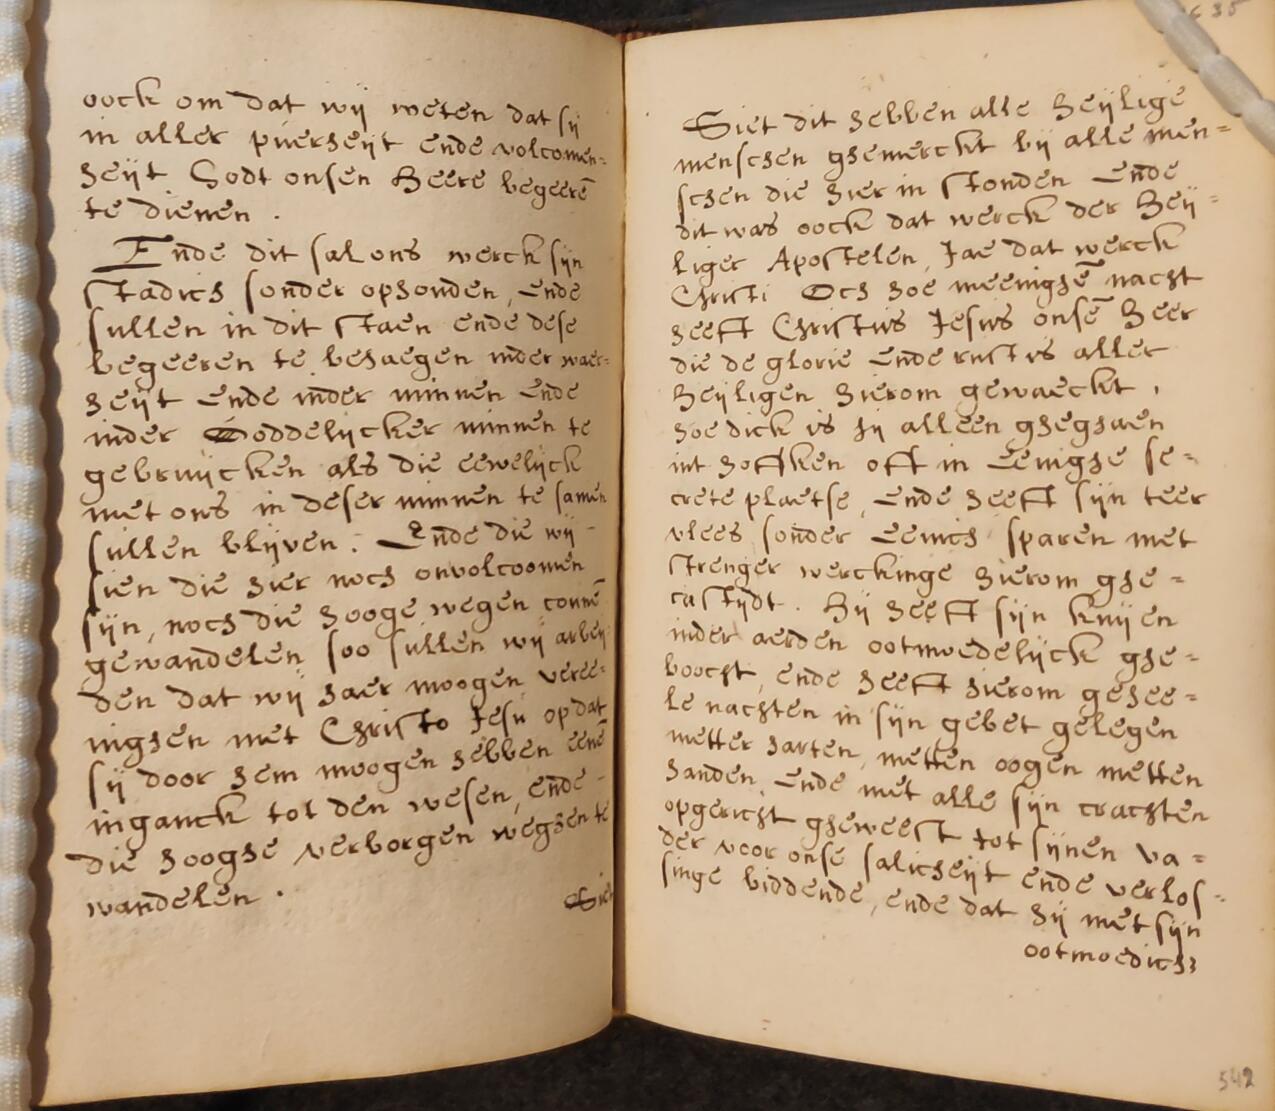 oock om dat wij weten dat sij
in aller puerheijt ende volcomen=
heijt Godt onsen Heere begeerē
te dienen .
Ende dit sal ons werck sijn
stadich sonder ophouden, ende
sullen in dit staen ende dese
begeeren te behaegen inder waer=
heijt ende inder minnen ende
inder Goddelijcker minnen te
gebruijcken als die eewelijck
met ons in deser minnen te samen
sullen blijven . Ende die wij
sien die hier noch onvolcoomen
sijn, noch die hooge wegen connē
gewandelen soo sullen wij arbeij
den dat wij haer moogen veree=
nighen met Christo Jesu op dat
sij door hem moogen hebben eenē
inganck tot den wesen, ende
die hooghe verborgen weghen te
wandelen .
Siet
Siet dit hebben alle Heijlige
menschen ghemerckt bij alle men=
schen die hier in stonden Ende
dit was oock dat werck der Heij=
liger Apostelen, Jae dat werck
Christi Och hoe meenighē nacht
heeft Christus Jesus onsē Heer
die de glorie ende rust is aller
Heijligen hierom gewaeckt ,
hoe dick is hij alleen ghegaen
int hoffken oft in Eenighe se=
crete plaetse, ende heeft sijn teer
vlees sonder Eenich sparen met
strenger werckinge hierom ghe=
castijdt . Hij heeft sijn knijen
inder aerden ootmoedelijck ghe=
boocht, ende heeft hierom gehee=
le nachten in sijn gebet gelegen
metter harten, metten oogen metten
handen, ende met alle sijn crachten
opgericht gheweest tot sijnen va=
der voor onse salicheijt ende verlos=
singe biddende, ende dat hij met sijn
ootmoedich
542